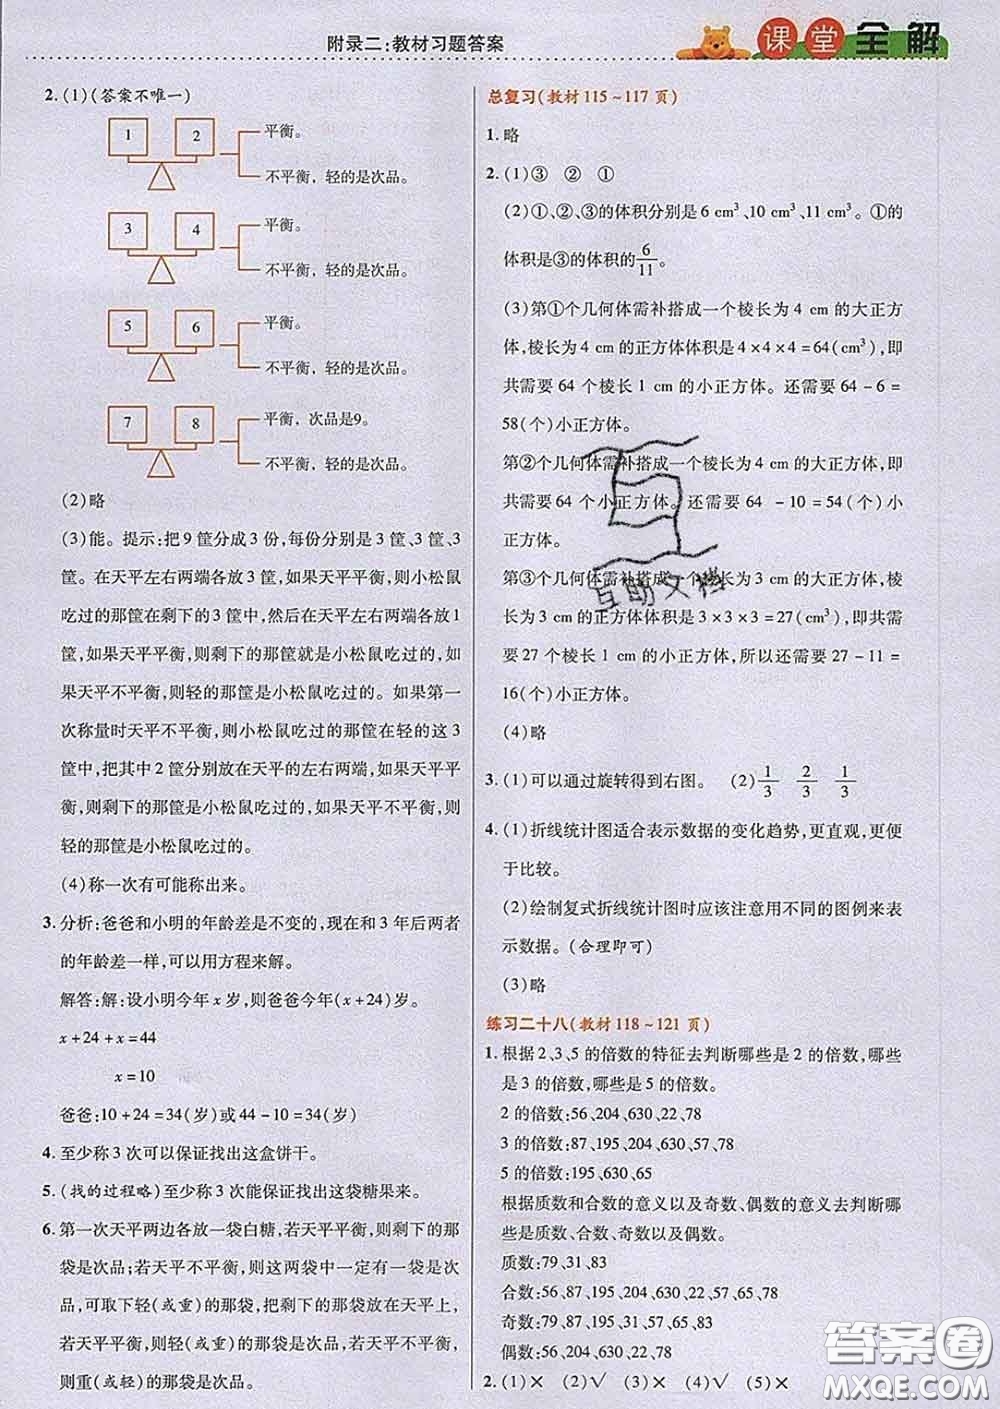 附录二:教材习题答案
课堂全解
2.(1)(答案不唯一)
1 2 平衡。
不平衡，轻的是次品。
3 4 平衡。
不平衡，轻的是次品。
5 6 平衡。
不平衡，轻的是次品。
7 8 平衡，次品是9。
不平衡，轻的是次品。
(2)略
(3)能。提示:把9筐分成3份,每份分别是3筐、3筐、3
筐。在天平左右两端各放3筐,如果天平平衡,则小松鼠
吃过的那筐在剩下的3筐中,然后在天平左右两端各放1
筐,如果天平平衡,则剩下的那筐是小松鼠吃过的,如
果天平不平衡,则轻的那筐是小松鼠吃过的。如果第一
次称量时天平不平衡,则小松鼠吃过的那筐在轻的这3
筐中,把其中2筐分别放在天平的左右两端,如果天平平
衡,则剩下的那筐是小松鼠吃过的,如果天平不平衡,则
轻的那筐是小松鼠吃过的。
(4)称一次有可能称出来。
3.分析:爸爸和小明的年龄差是不变的,现在和3年后两者
的年龄差一样,可以用方程来解。
解答:解:设小明今年x岁,则爸爸今年(x+24)岁。
x+24+x=44
x=10
爸爸:10+24=34(岁)或44-10=34(岁)
4.至少称3次可以保证找出这盒饼干。
5.(找的过程略)至少称3次能保证找出这袋糖果来。
6.第一次天平两边各放一袋白糖,若天平平衡,则剩下的那
袋是次品;若天平不平衡,则这两袋中一定有一袋是次
品,可取下轻(或重)的那袋,把剩下的那袋放在天平上,
若天平平衡,则轻(或重)的那袋是次品,若天平不平衡,
则重(或轻)的那袋是次品。
总复习(教材115~117页)
1.略
2.(1)③ ② ①
(2)①、②、③的体积分别是6 cm³、10 cm³、11 cm³。①的
体积是③的体积的6/11。
(3)第①个几何体需补搭成一个棱长为4 cm的大正方
体,棱长为4 cm的正方体体积是4×4×4=64(cm³),即
共需要64个棱长1 cm的小正方体。还需要64-6=
58(个)小正方体。
第②个几何体需补搭成一个棱长为4 cm的大正方体,即
共需要64个小正方体。还需要64-10=54(个)小
正方体。
第③个几何体需补搭成一个棱长为3 cm的大正方体,棱
长为3 cm的正方体体积是3×3×3=27(cm³),即共需
要27个棱长1 cm的小正方体,所以还需要27-11=
16(个)小正方体。
(4)略
3.(1)可以通过旋转得到右图。 (2)1/3 2/3 1/3
4.(1)折线统计图适合表示数据的变化趋势,更直观,更便
于比较。
(2)绘制复式折线统计图时应该注意用不同的图例来表
示数据。(合理即可)
(3)略
练习二十八(教材118~121页)
1.根据2、3、5的倍数的特征去判断哪些是2的倍数,哪些
是3的倍数,哪些是5的倍数。
2的倍数:56、204、630、22、78
3的倍数:87、195、204、630、57、78
5的倍数:195、630、65
根据质数和合数的意义以及奇数、偶数的意义去判断哪
些是质数、合数、奇数以及偶数。
质数:79、31、83
合数:56、87、195、204、630、22、57、65、78
奇数:79、87、195、31、57、65、83
偶数:56、204、630、22、78
2.(1)× (2)√ (3)× (4)√ (5)×
互助文档
答案圈
MXQE.COM